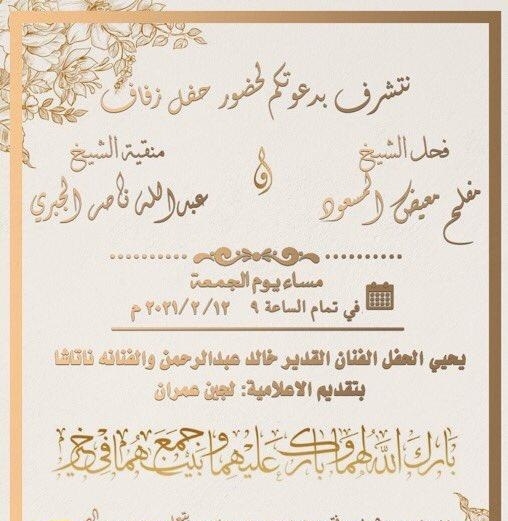 نتشرف بدعوتكم لحضور حفل زفاف
فحل الشيخ
مفلح معيض المسعود
و
منقية الشيخ
عبدالله ناصر الجبري
مساء يوم الجمعة
في تمام الساعة ٩ ٢٠٢١/٢/١٢ م
يحيي الحفل الفنان القدير خالد عبدالرحمن والفنانه ناتاشا
بتقديم الاعلامية: لجين عمران
بارك الله لهما وبارك عليهما وجمع بينهما في خير